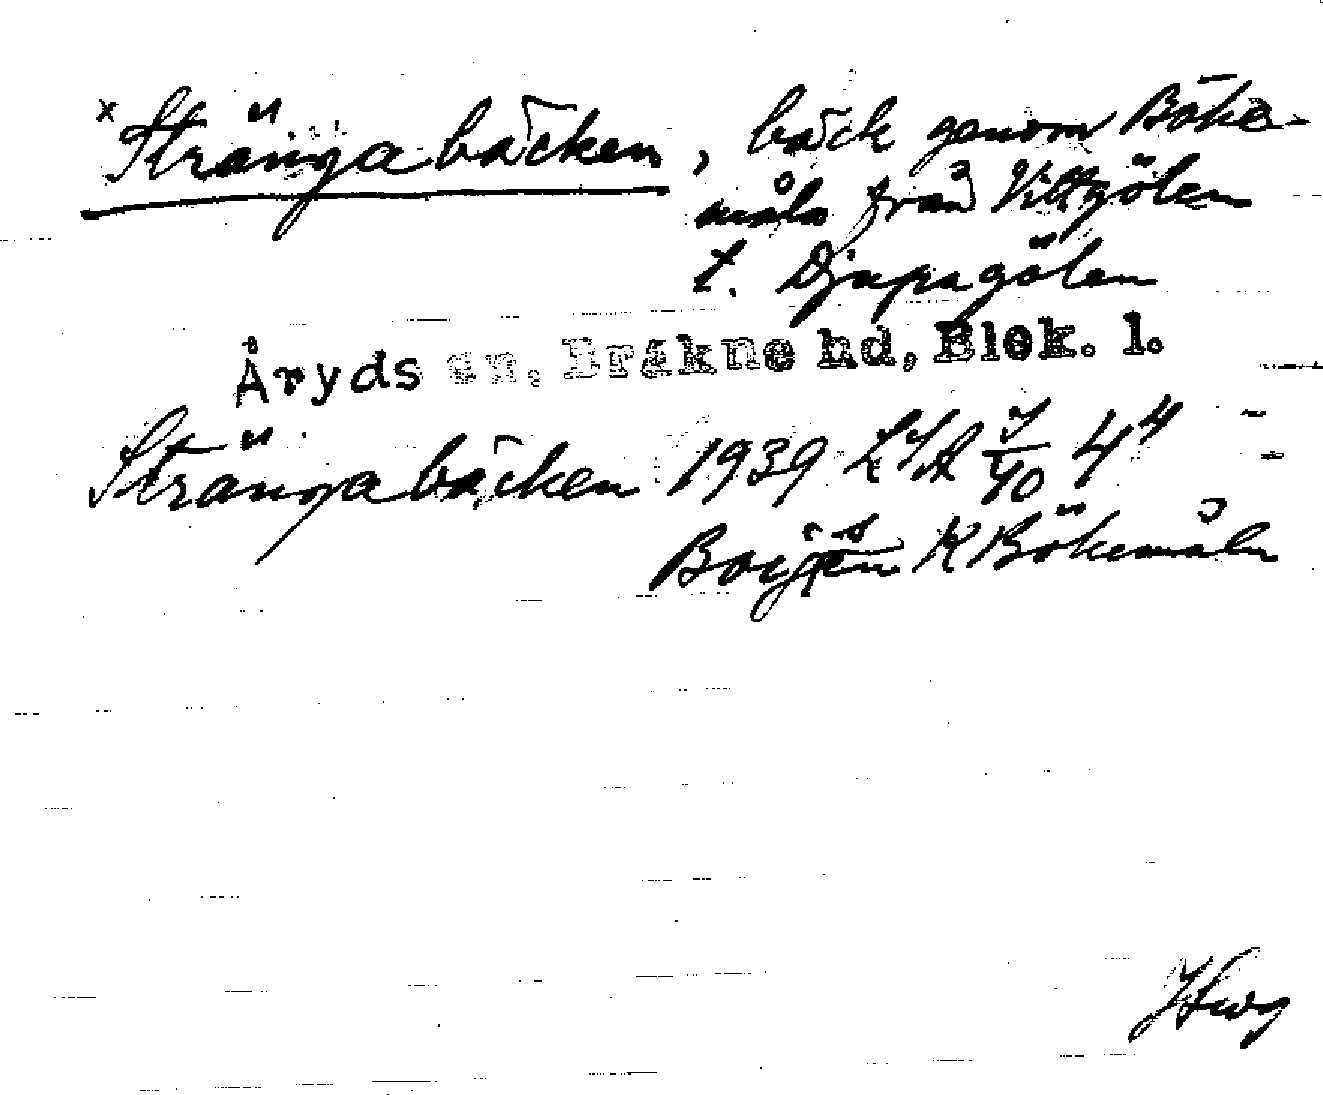 x Strängabäcken, bäck genom Böke-
måla från Vittgölen
t. Djupagölen
Åryds sn, Bräkne hd, Blek. l.
Strängabäcken 1939 LSA 4⁴
K Bökemåla